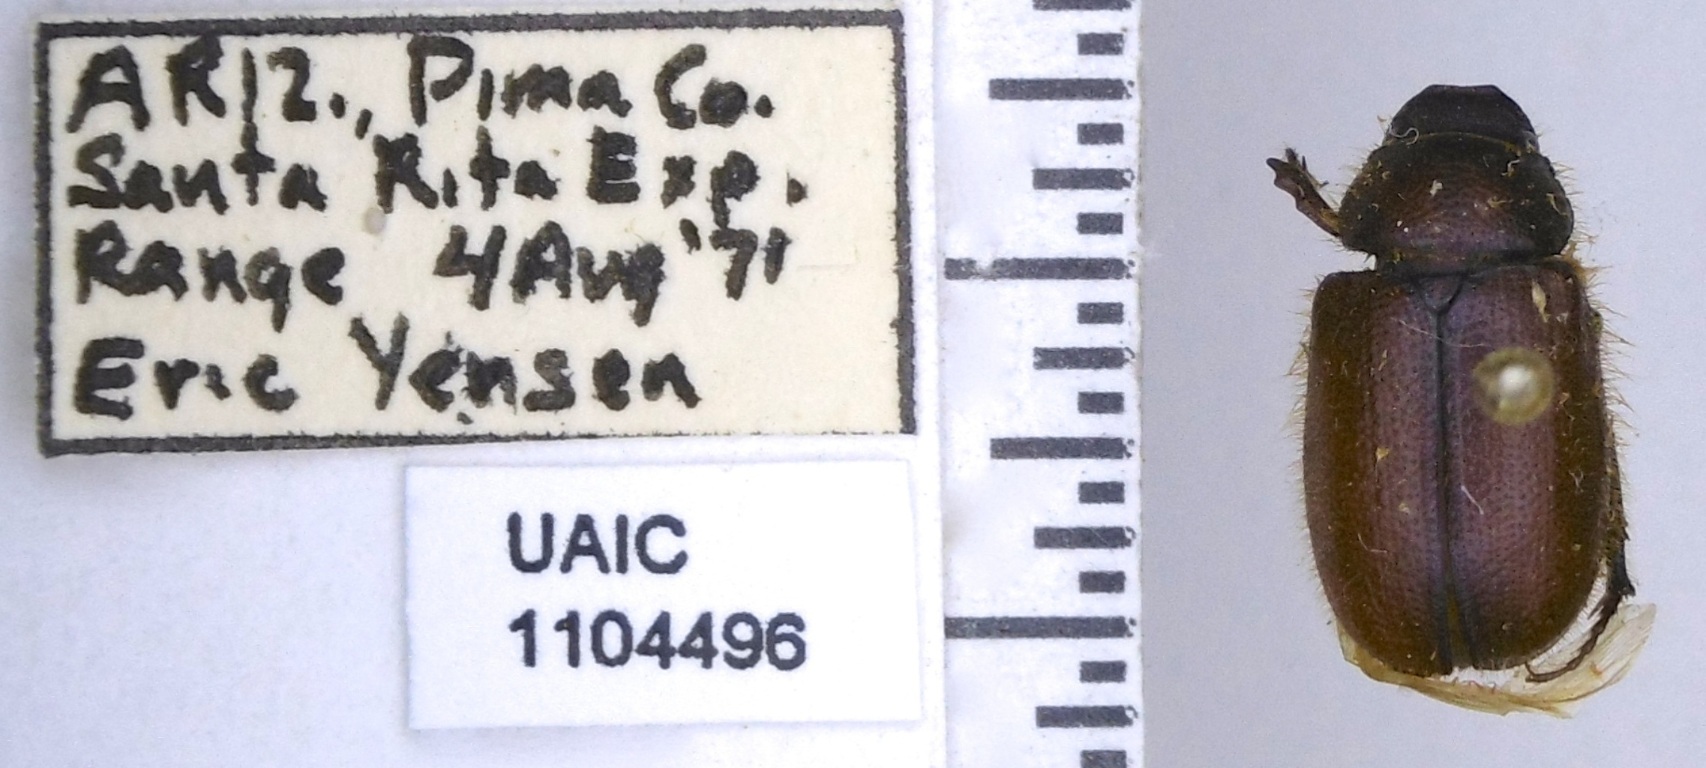 ARIZ., Pima Co.
Santa Rita Exp.
Range 4 Aug '71
Eric Yensen
UAIC
1104496